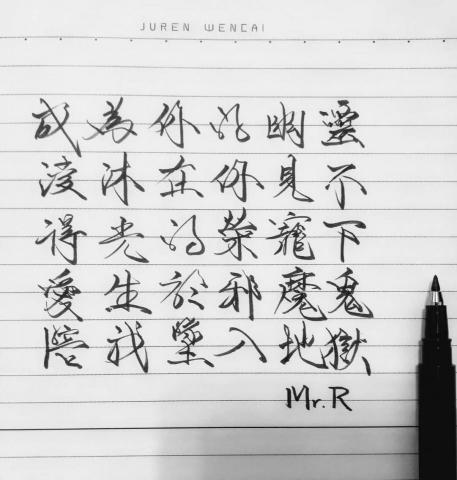 JUREN WENCAI
成為你的幽靈
浸沐在你見不
得光的榮寵下
愛生於邪魔鬼
陪我墜入地獄
Mr.R